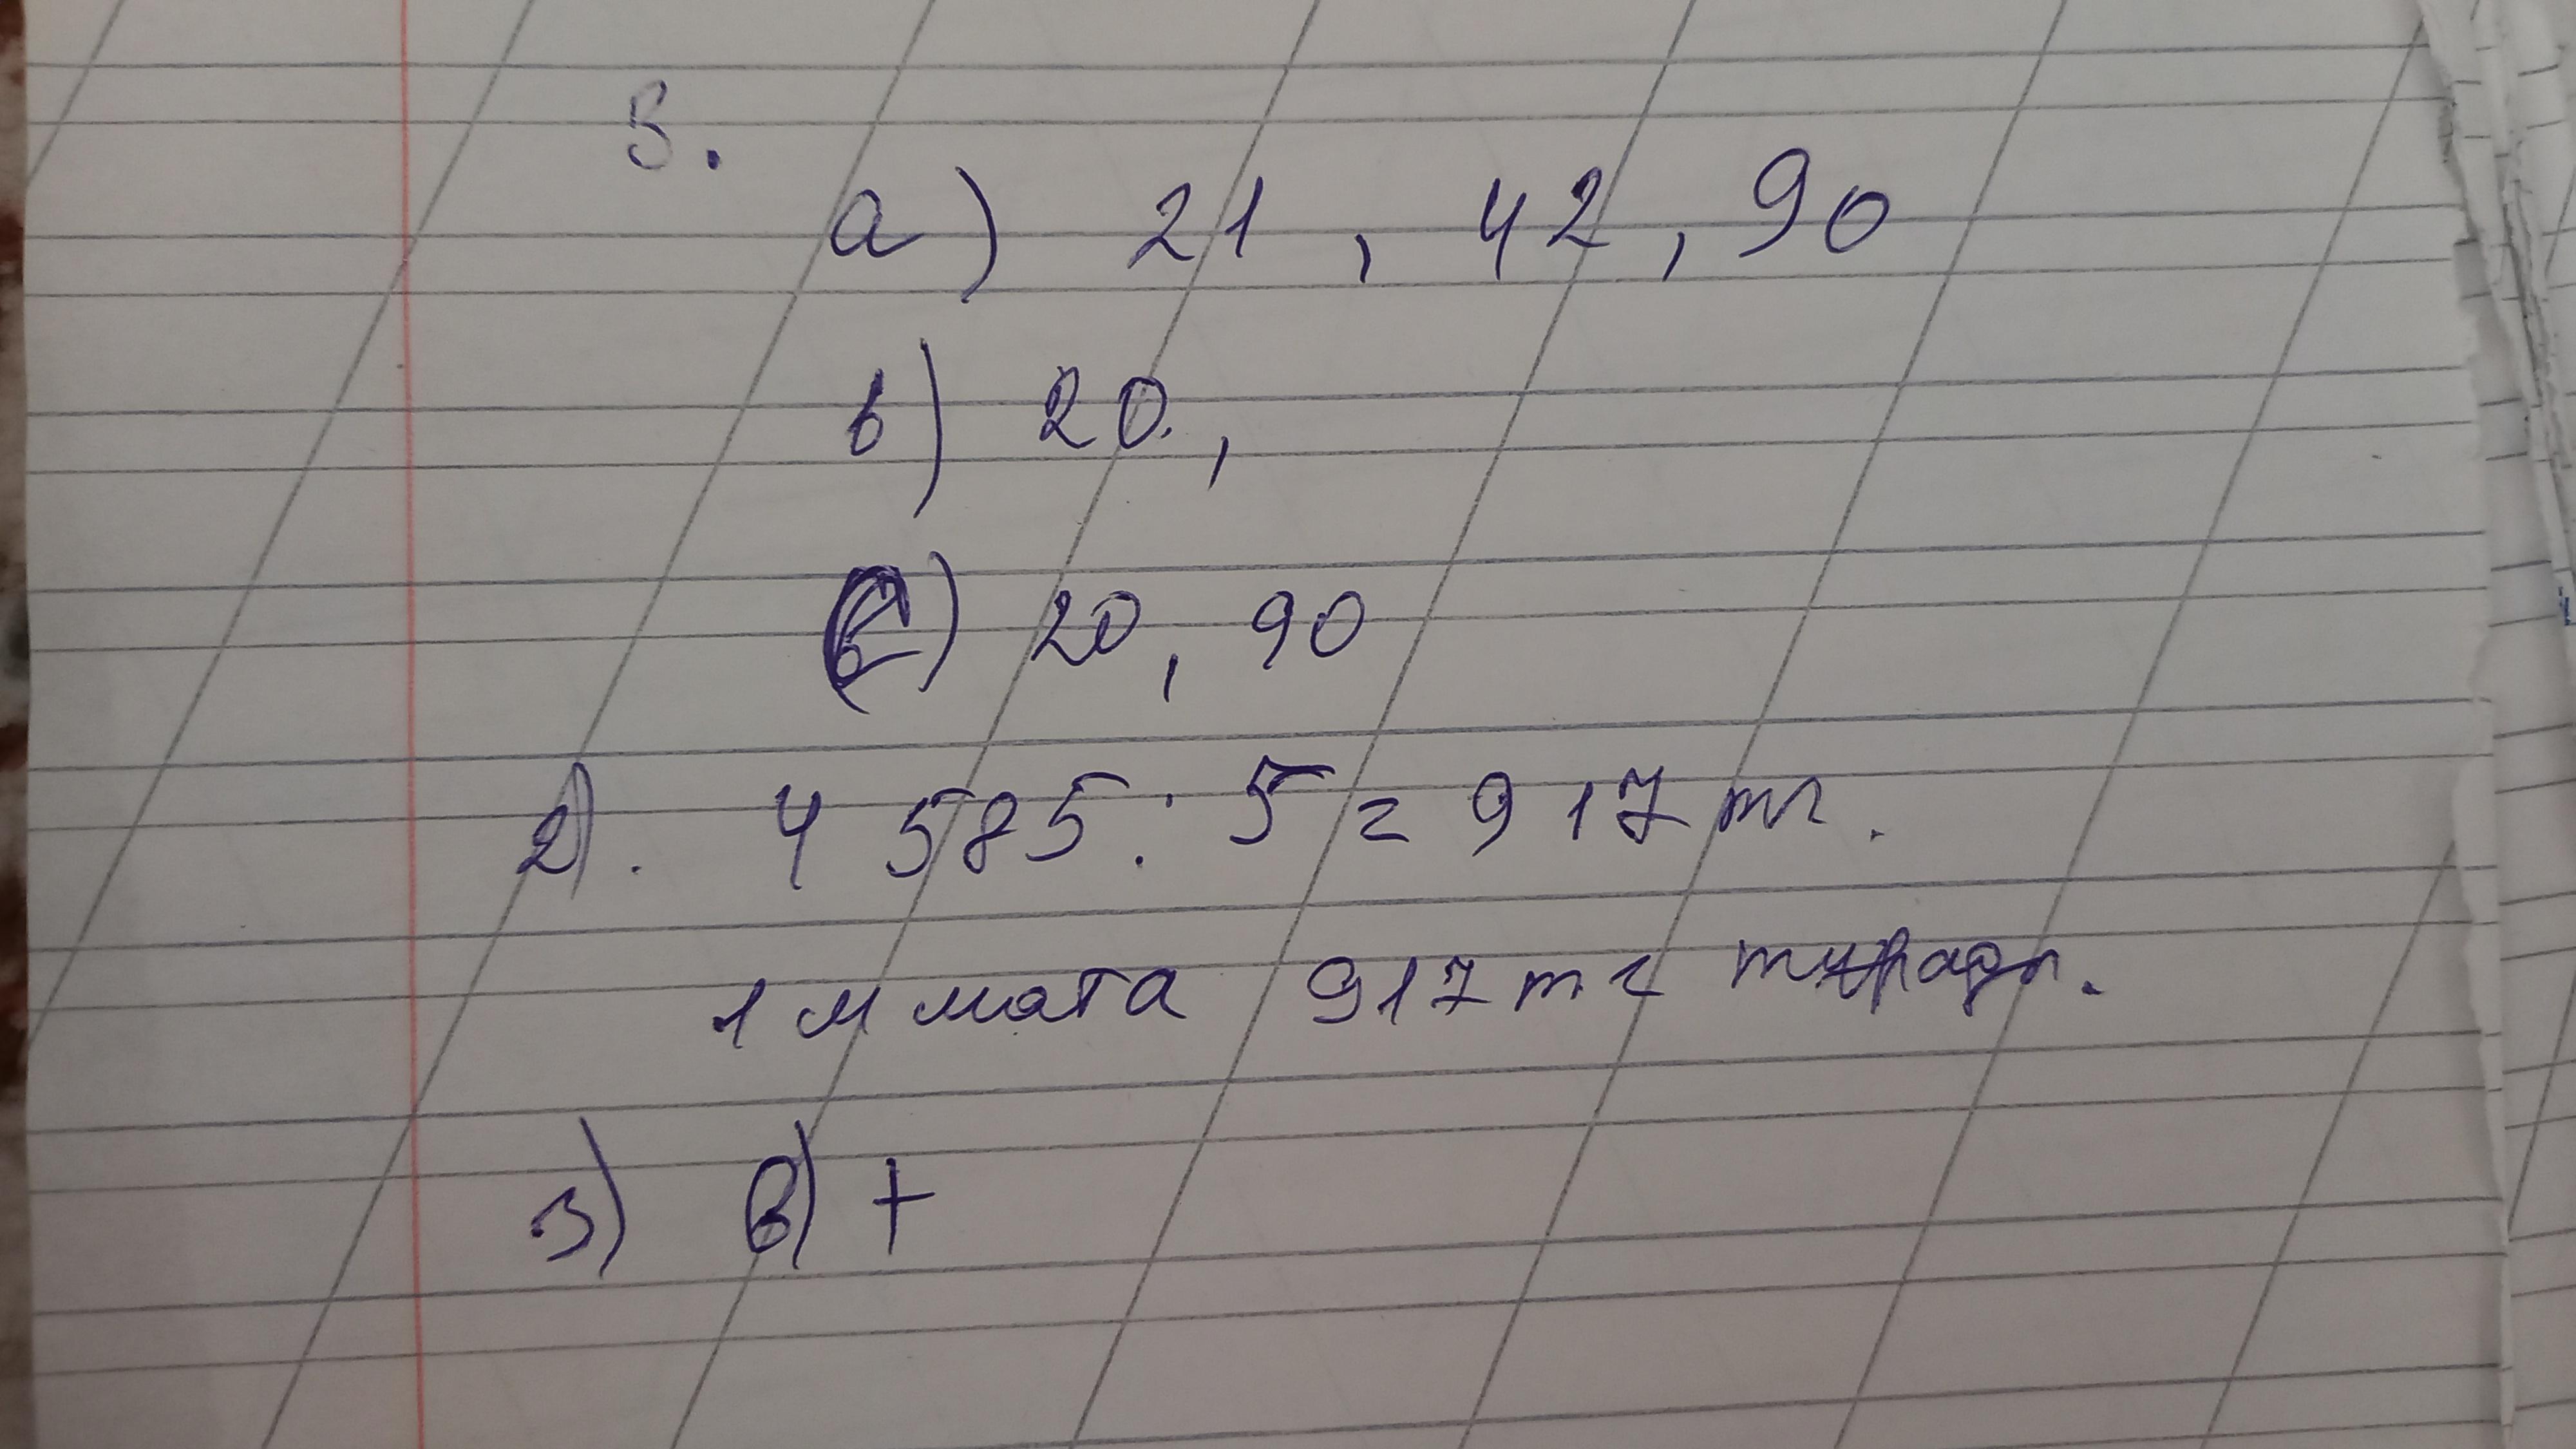 3.
а) 21, 42, 90
в) 20.,
с) 20, 90
2). 4 585 : 5 = 917 тг.
1 м мата 917 тг тұрады.
3) в) +